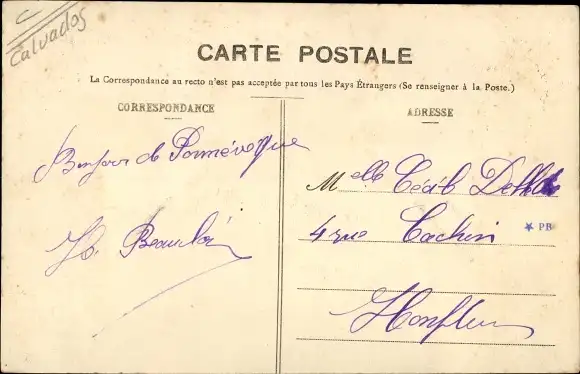 C
Calvados
CARTE POSTALE
La Correspondance au recto n'est pas acceptée par tous les Pays Étrangers (Se renseigner à la Poste.)
CORRESPONDANCE
ADRESSE
Bonjour de Pennedepie
Melle Cécile
4 rue Cachin
PB
Honfleur